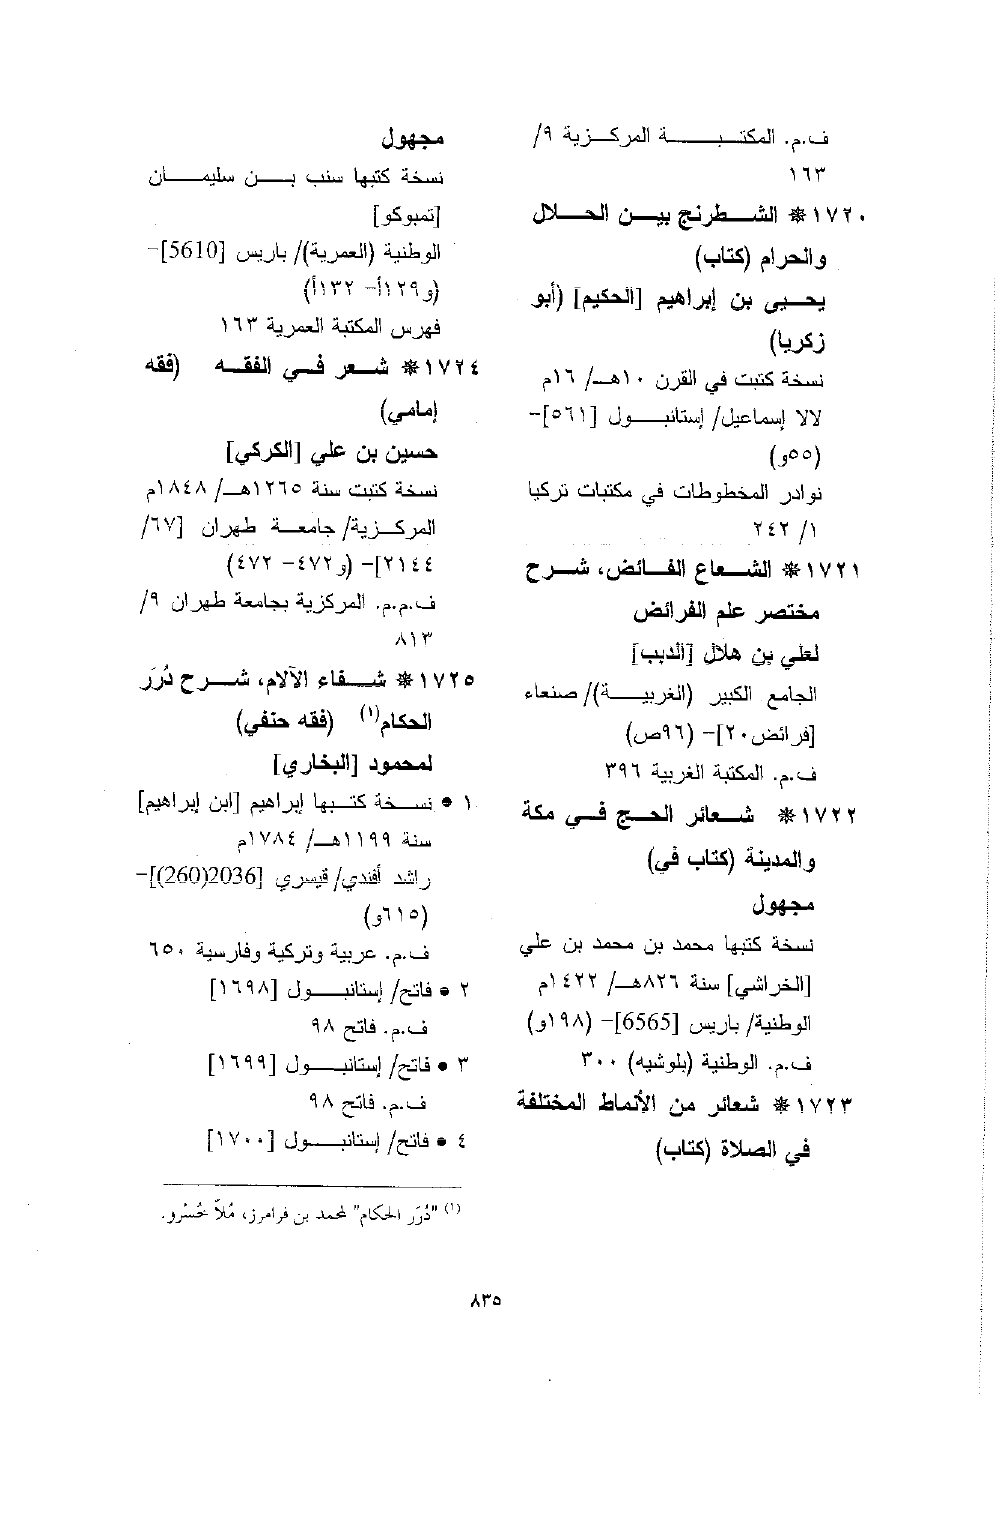 ف.م. المكتبة المركزية ٩/
١٦٣
١٧٢٠* الشطرنج بين الحلال
والحرام (كتاب)
يحيى بن إبراهيم [الحكيم] (أبو
زكريا)
نسخة كتبت في القرن ١٠هـ/ ١٦م
لالا إسماعيل/ إستانبول [٥٦١]-
(٥٥و)
نوادر المخطوطات في مكتبات تركيا
١/ ٢٤٢
١٧٢١* الشعاع الفائض، شرح
مختصر علم الفرائض
لعلي بن هلال [الدبب]
الجامع الكبير (الغربية)/ صنعاء
[فرائض٢٠]- (٩٦ص)
ف.م. المكتبة الغربية ٣٩٦
١٧٢٢* شعائر الحج في مكة
والمدينة (كتاب في)
مجهول
نسخة كتبها محمد بن محمد بن علي
[الخراشي] سنة ٨٢٦هـ/ ١٤٢٢م
الوطنية/ باريس [6565]- (١٩٨و)
ف.م. الوطنية (بلوشيه) ٣٠٠
١٧٢٣* شعائر من الأنماط المختلفة
في الصلاة (كتاب)
مجهول
نسخة كتبها سنب بن سليمان
[تمبوكو]
الوطنية (العمرية)/ باريس [5610]-
(و١٢٩أ- ١٣٢أ)
فهرس المكتبة العمرية ١٦٣
١٧٢٤* شعر في الفقه (فقه
إمامي)
حسين بن علي [الكركي]
نسخة كتبت سنة ١٢٦٥هـ/ ١٨٤٨م
المركزية/ جامعة طهران [٦٧/
٢١٤٤]- (و٤٧٢- ٤٧٢)
ف.م.م. المركزية بجامعة طهران ٩/
٨١٣
١٧٢٥* شفاء الآلام، شرح دُرَر
الحكام(١) (فقه حنفي)
لمحمود [البخاري]
١ • نسخة كتبها إبراهيم [ابن إبراهيم]
سنة ١١٩٩هـ/ ١٧٨٤م
راشد أفندي/ قيسري [2036(260)]-
(٦١٥و)
ف.م. عربية وتركية وفارسية ٦٥٠
٢ • فاتح/ إستانبول [١٦٩٨]
ف.م. فاتح ٩٨
٣ • فاتح/ إستانبول [١٦٩٩]
ف.م. فاتح ٩٨
٤ • فاتح/ إستانبول [١٧٠٠]
(١) "دُرَر الحكام" لمحمد بن فرامرز، مُلاّ خُسْرو.
٨٣٥